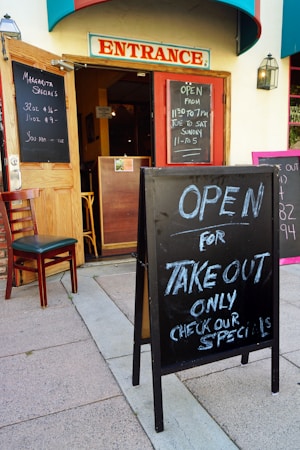 ENTRANCE
MARGARITA
SPECIALS
32OZ $16-
16OZ $9-
OPEN
FROM
11:30 TO 7PM
TUE TO SAT
SUNDAY
11-TO 5
OUT
82
94
OPEN
FOR
TAKE OUT
ONLY
CHECK OUR
SPECIALS